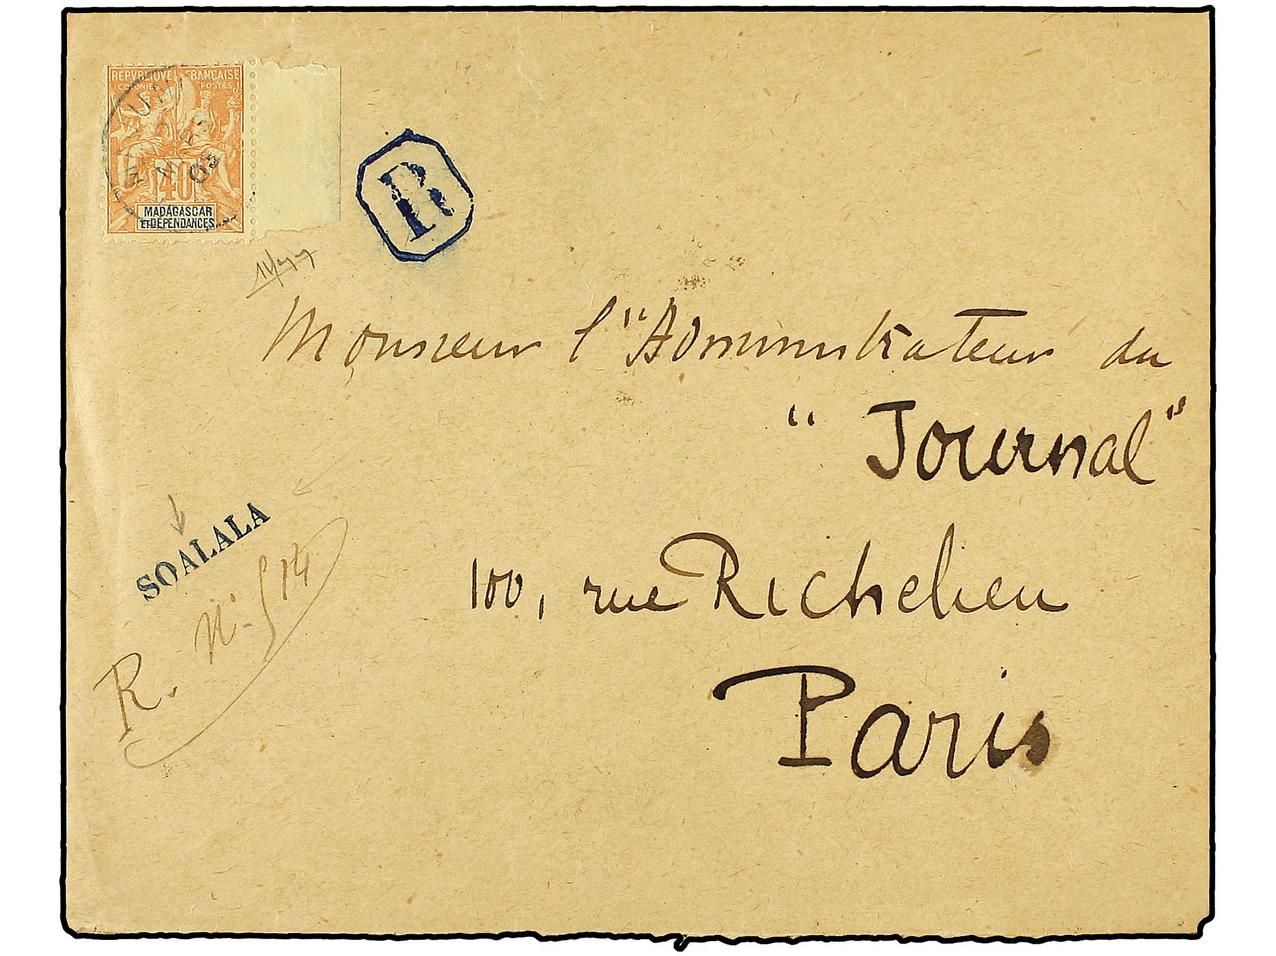 REPVBLIQVE FRANÇAISE
COLONIES POSTES
40
MADAGASCAR
ET DÉPENDANCES
R
Monsieur l'"Administrateur du
"Journal"
SOALALA
100, rue Richelieu
R. N° 514
Paris